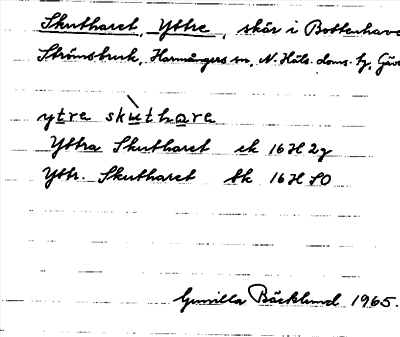 Skutharet, Yttre, skär i Bottenhave
Strömsbruk, Harmångers sn, N. Häls. doms. tg, Gäv
ytre skùthare
Yttra Skutharet ek 16H2g
Yttr. Skutharet bk 16H50
Gunilla Bäcklund 1965.